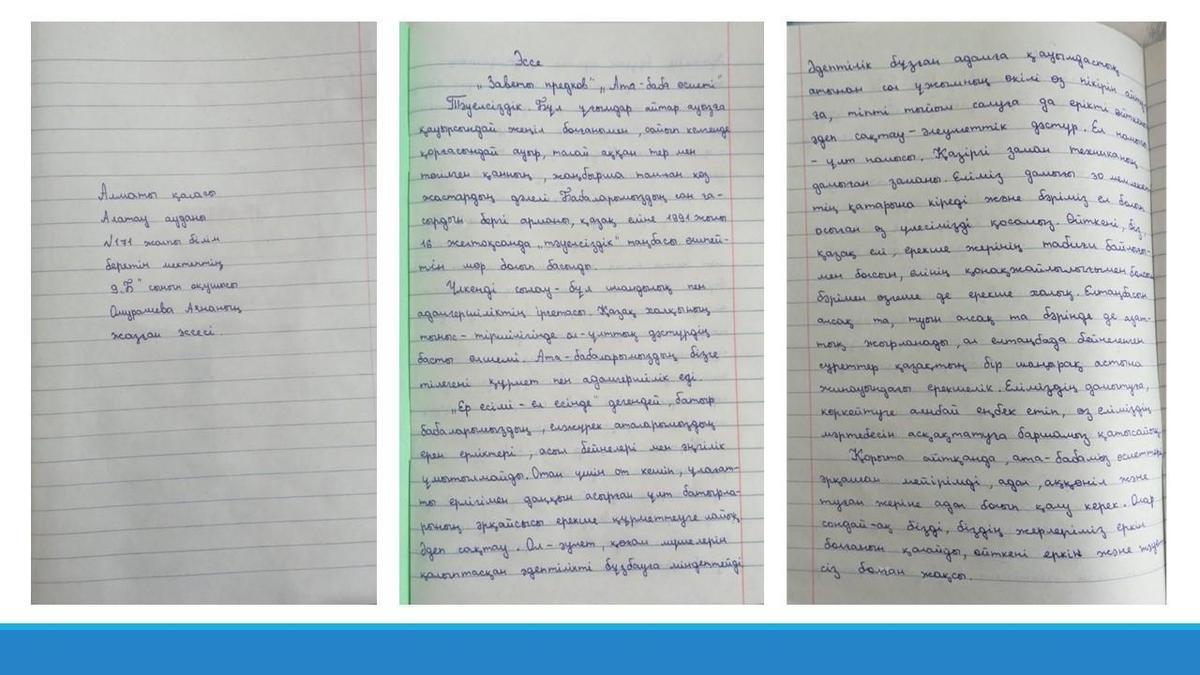 Алматы қаласы
Алатау ауданы
№171 жалпы білім
беретін мектептің
9 „Б" сынып оқушысы
Аянаның
жазған эссесі
Эссе
„Заветы предков" „Ата-баба өсиеті"
Тәуелсіздік. Бұл ұғымдар айтар ауызға
қауырсындай жеңіл болғанымен, сайып келгенде
қорғасындай ауыр, талай аққан тер мен
төгілген қанның, жаңбырша тамған көз
жастардың дәлелі. Бабаларымыздың сан ға-
сырдың бергі арманы, қазақ еліне 1991 жылы
16 желтоқсанда „тәуелсіздік" таңбасы өшпей-
тін мөр болып басылды.
Үлкенді сыйлау - бұл имандылық пен
адамгершіліктің іргетасы. Қазақ халқының
тыныс-тіршілігінде ол-ұлттық дәстүрдің
басты өлшемі. Ата-бабаларымыздың бізге
тілегені құрмет пен адамгершілік еді.
„Ер есімі - ел есінде" дегендей, батыр
бабаларымыздың, елжүрек аталарымыздың
ерен ерліктері, асыл бейнелері мен әңгілік
ұмытылмайды. Отан үшін от кешіп, ұлағат-
ты ерлігімен даңқын асырған ұлт батырла-
рының әрқайсысы ерекше құрметтеуге лайық.
Әдеп сақтау. Ол-әулет, қоғам мүшелерін
қалыптасқан әдептілікті бұзбауға міндеттейді
Әдептілік бұзған адамға қауымдастық
атынан сол ұжымның өкілі өз пікірін айтуға
ға, тіпті тыйым салуға да ерікті өйткені
әдеп сақтау-әлеуметтік дәстүр. Ел намысы
- ұлт намысы. Қазіргі заман техниканың
дамыған заманы. Еліміз дамыған 30 мемлекет
тің қатарына кіреді және бәріміз ел болып
осыған өз үлесімізді қосамыз. Өйткені, біз,
қазақ елі, ерекше жерінің табиғи байлығы-
мен болсын, елінің қонақжайлылығымен болсын
бәрімен өзінше де ерекше халық. Елтаңбасын
алсақ та, туын алсақ та бәрінде де азат-
тық жырланады, ал елтаңбада бейнеленген
суреттер қазақтың бір шаңырақ астына
жиналуындағы ерекшелік. Еліміздің дамытуға,
көркейтуге алибай еңбек етіп, өз еліміздің
мәртебесін асқақтатуға баршамыз қатысайық.
Қорыта айтқанда, ата-бабамыз өсиеттері
әрқашан мейірімді, адал, ақкөңіл және
туған жеріне адал болып қалу керек. Олар
сондай-ақ бізді, біздің жерлеріміз еркін
болғанын қалайды, өйткені еркін және тәуел
сіз болған жақсы.